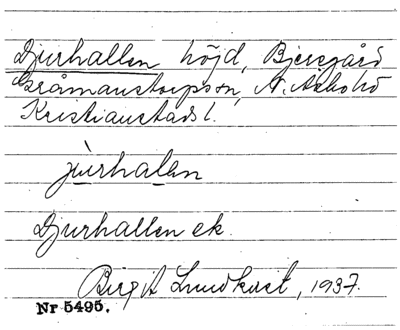 Djurhallen höjd, Bjersgård
Gråmanstorps sn, N. Åsbo hd
Kristianstads l.
jùrhalen
Djurhallen ek.
Birgit Lundkvist, 1937.
Nr 5495.